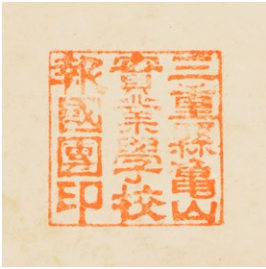 三重縣龜山
實業學校
報國團印